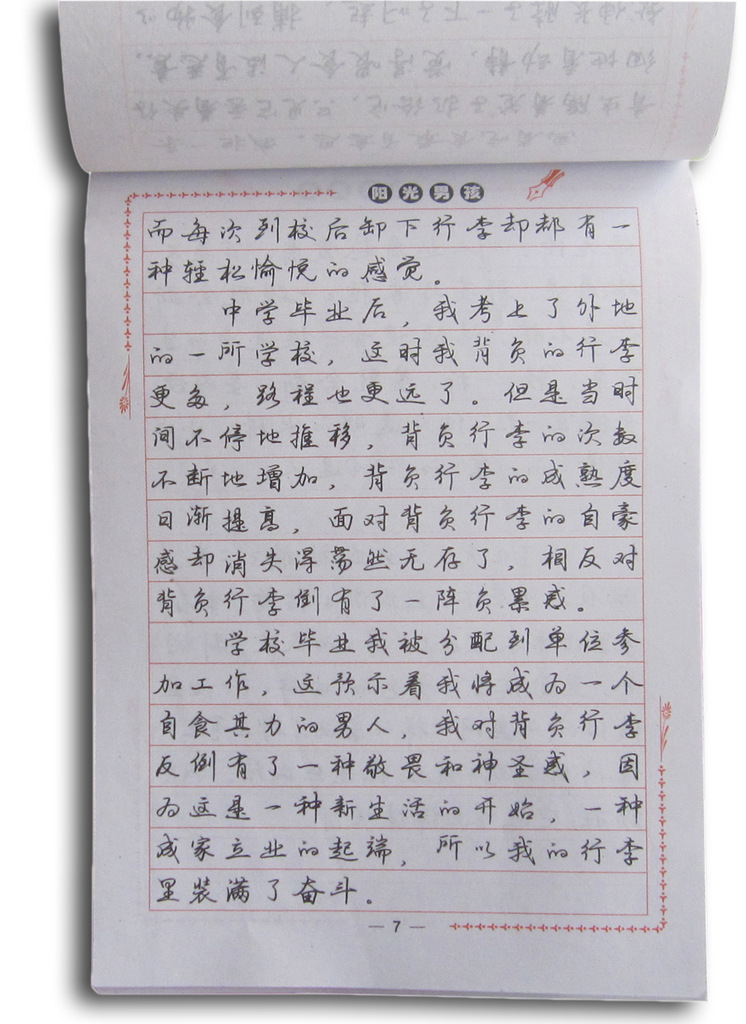 阳光男孩
而每次到校后卸下行李却都有一
种轻松愉悦的感觉。
中学毕业后，我考上了外地
的一所学校，这时我背负的行李
更多，路程也更远了。但是当时
间不停地推移，背负行李的次数
不断地增加，背负行李的成熟度
日渐提高，面对背负行李的自豪
感却消失得荡然无存了，相反对
背负行李倒有了一阵负累感。
学校毕业我被分配到单位参
加工作，这预示着我将成为一个
自食其力的男人，我对背负行李
反倒有了一种敬畏和神圣感，因
为这是一种新生活的开始，一种
成家立业的起端，所以我的行李
里装满了奋斗。
— 7 —